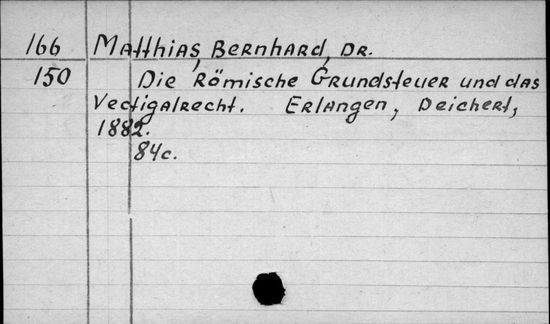 166 Matthias, Bernhard, Dr.
150 Die Römische Grundsteuer und das
Vectigalrecht. Erlangen, Deichert,
1882.
84c.